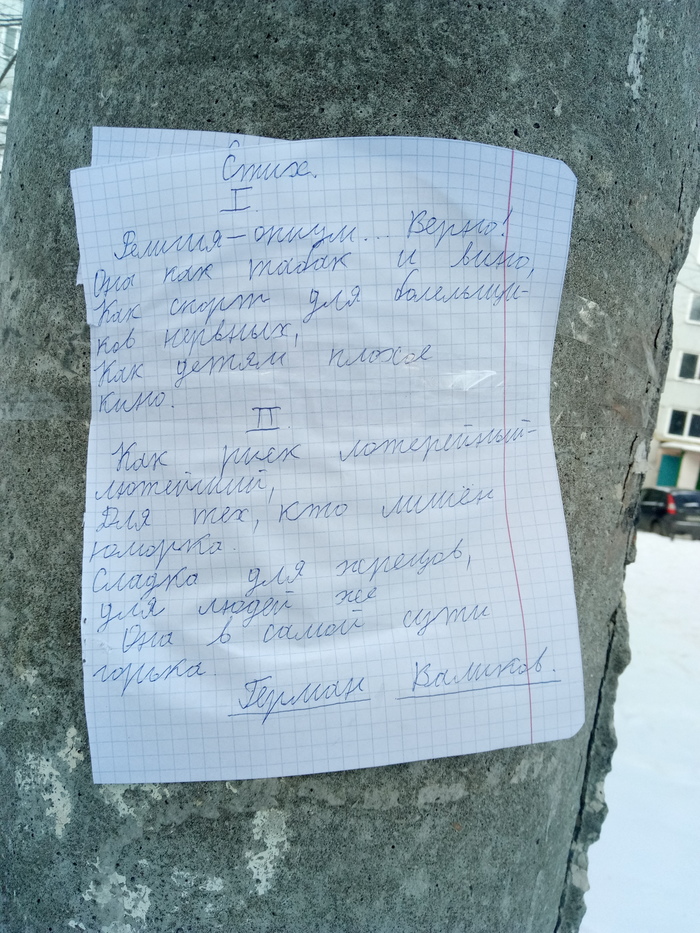 Стих.
I.
Религия – опиум... Верно!
Она как табак и вино,
Как спорт для болельщи-
ков нервных,
Как детям плохое
кино.
II.
Как риск лотерейный-
лютейший,
Для тех, кто лишён
юморка.
Сладка для жрецов,
для людей же
Она в самой сути
горька.
Герман Валиков.